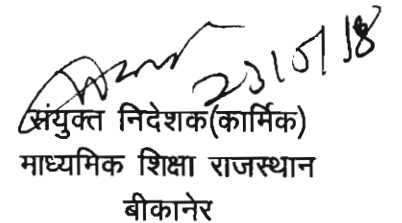 23/5/18
संयुक्त निदेशक(कार्मिक)
माध्यमिक शिक्षा राजस्थान
बीकानेर